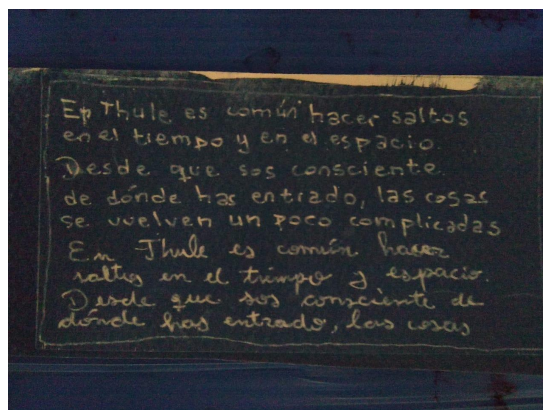 En Thule es común hacer saltos
en el tiempo y en el espacio.
Desde que sos consciente
de dónde has entrado, las cosas
se vuelven un poco complicadas
En Thule es común hacer
saltos en el tiempo y espacio.
Desde que sos consciente de
dónde has entrado, las cosas